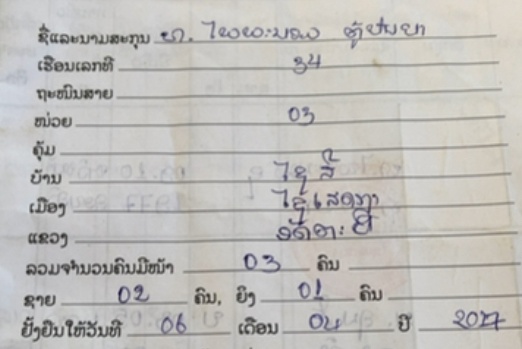 ຊື່ແລະນາມສະກຸນ ທ.
ເຮືອນເລກທີ 34
ຖະໜົນສາຍ
ໜ່ວຍ 03
ຄຸ້ມ
ບ້ານ ໄຊສີ
ເມືອງ ໄຊເສດຖາ
ແຂວງ ອັດຕະປື
ລວມຈຳນວນຄົນມີໜ້າ 03 ຄົນ
ຊາຍ 02 ຄົນ, ຍິງ 01 ຄົນ
ຢັ້ງຢືນໃຫ້ວັນທີ 06 ເດືອນ 04 ປີ